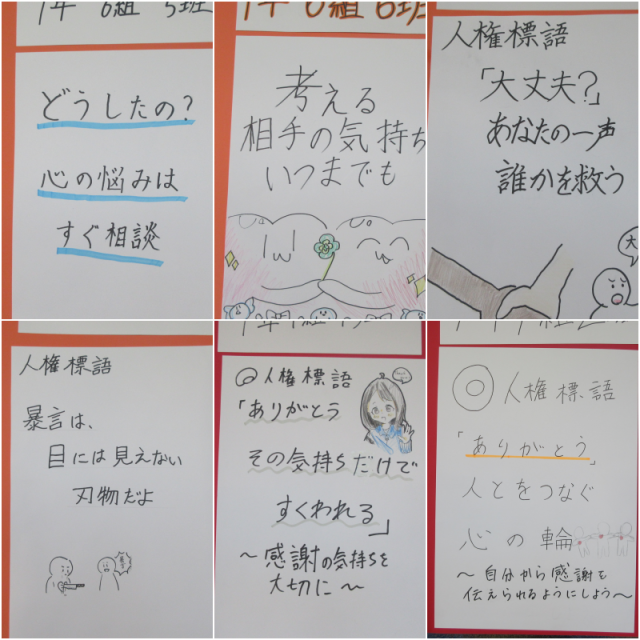 1年 6組 5班
どうしたの？
心の悩みは
すぐ相談
1年 6組 6班
考える
相手の気持ち
いつまでも
人権標語
「大丈夫?」
あなたの一声
誰かを救う
大
人権標語
暴言は、
目には見えない
刃物だよ
人権標語
「ありがとう
その気持ちだけで
すくわれる」
〜感謝の気持ちを
大切に〜
人権標語
「ありがとう」
人とをつなぐ
心の輪
〜自分から感謝を
伝えられるようにしよう〜